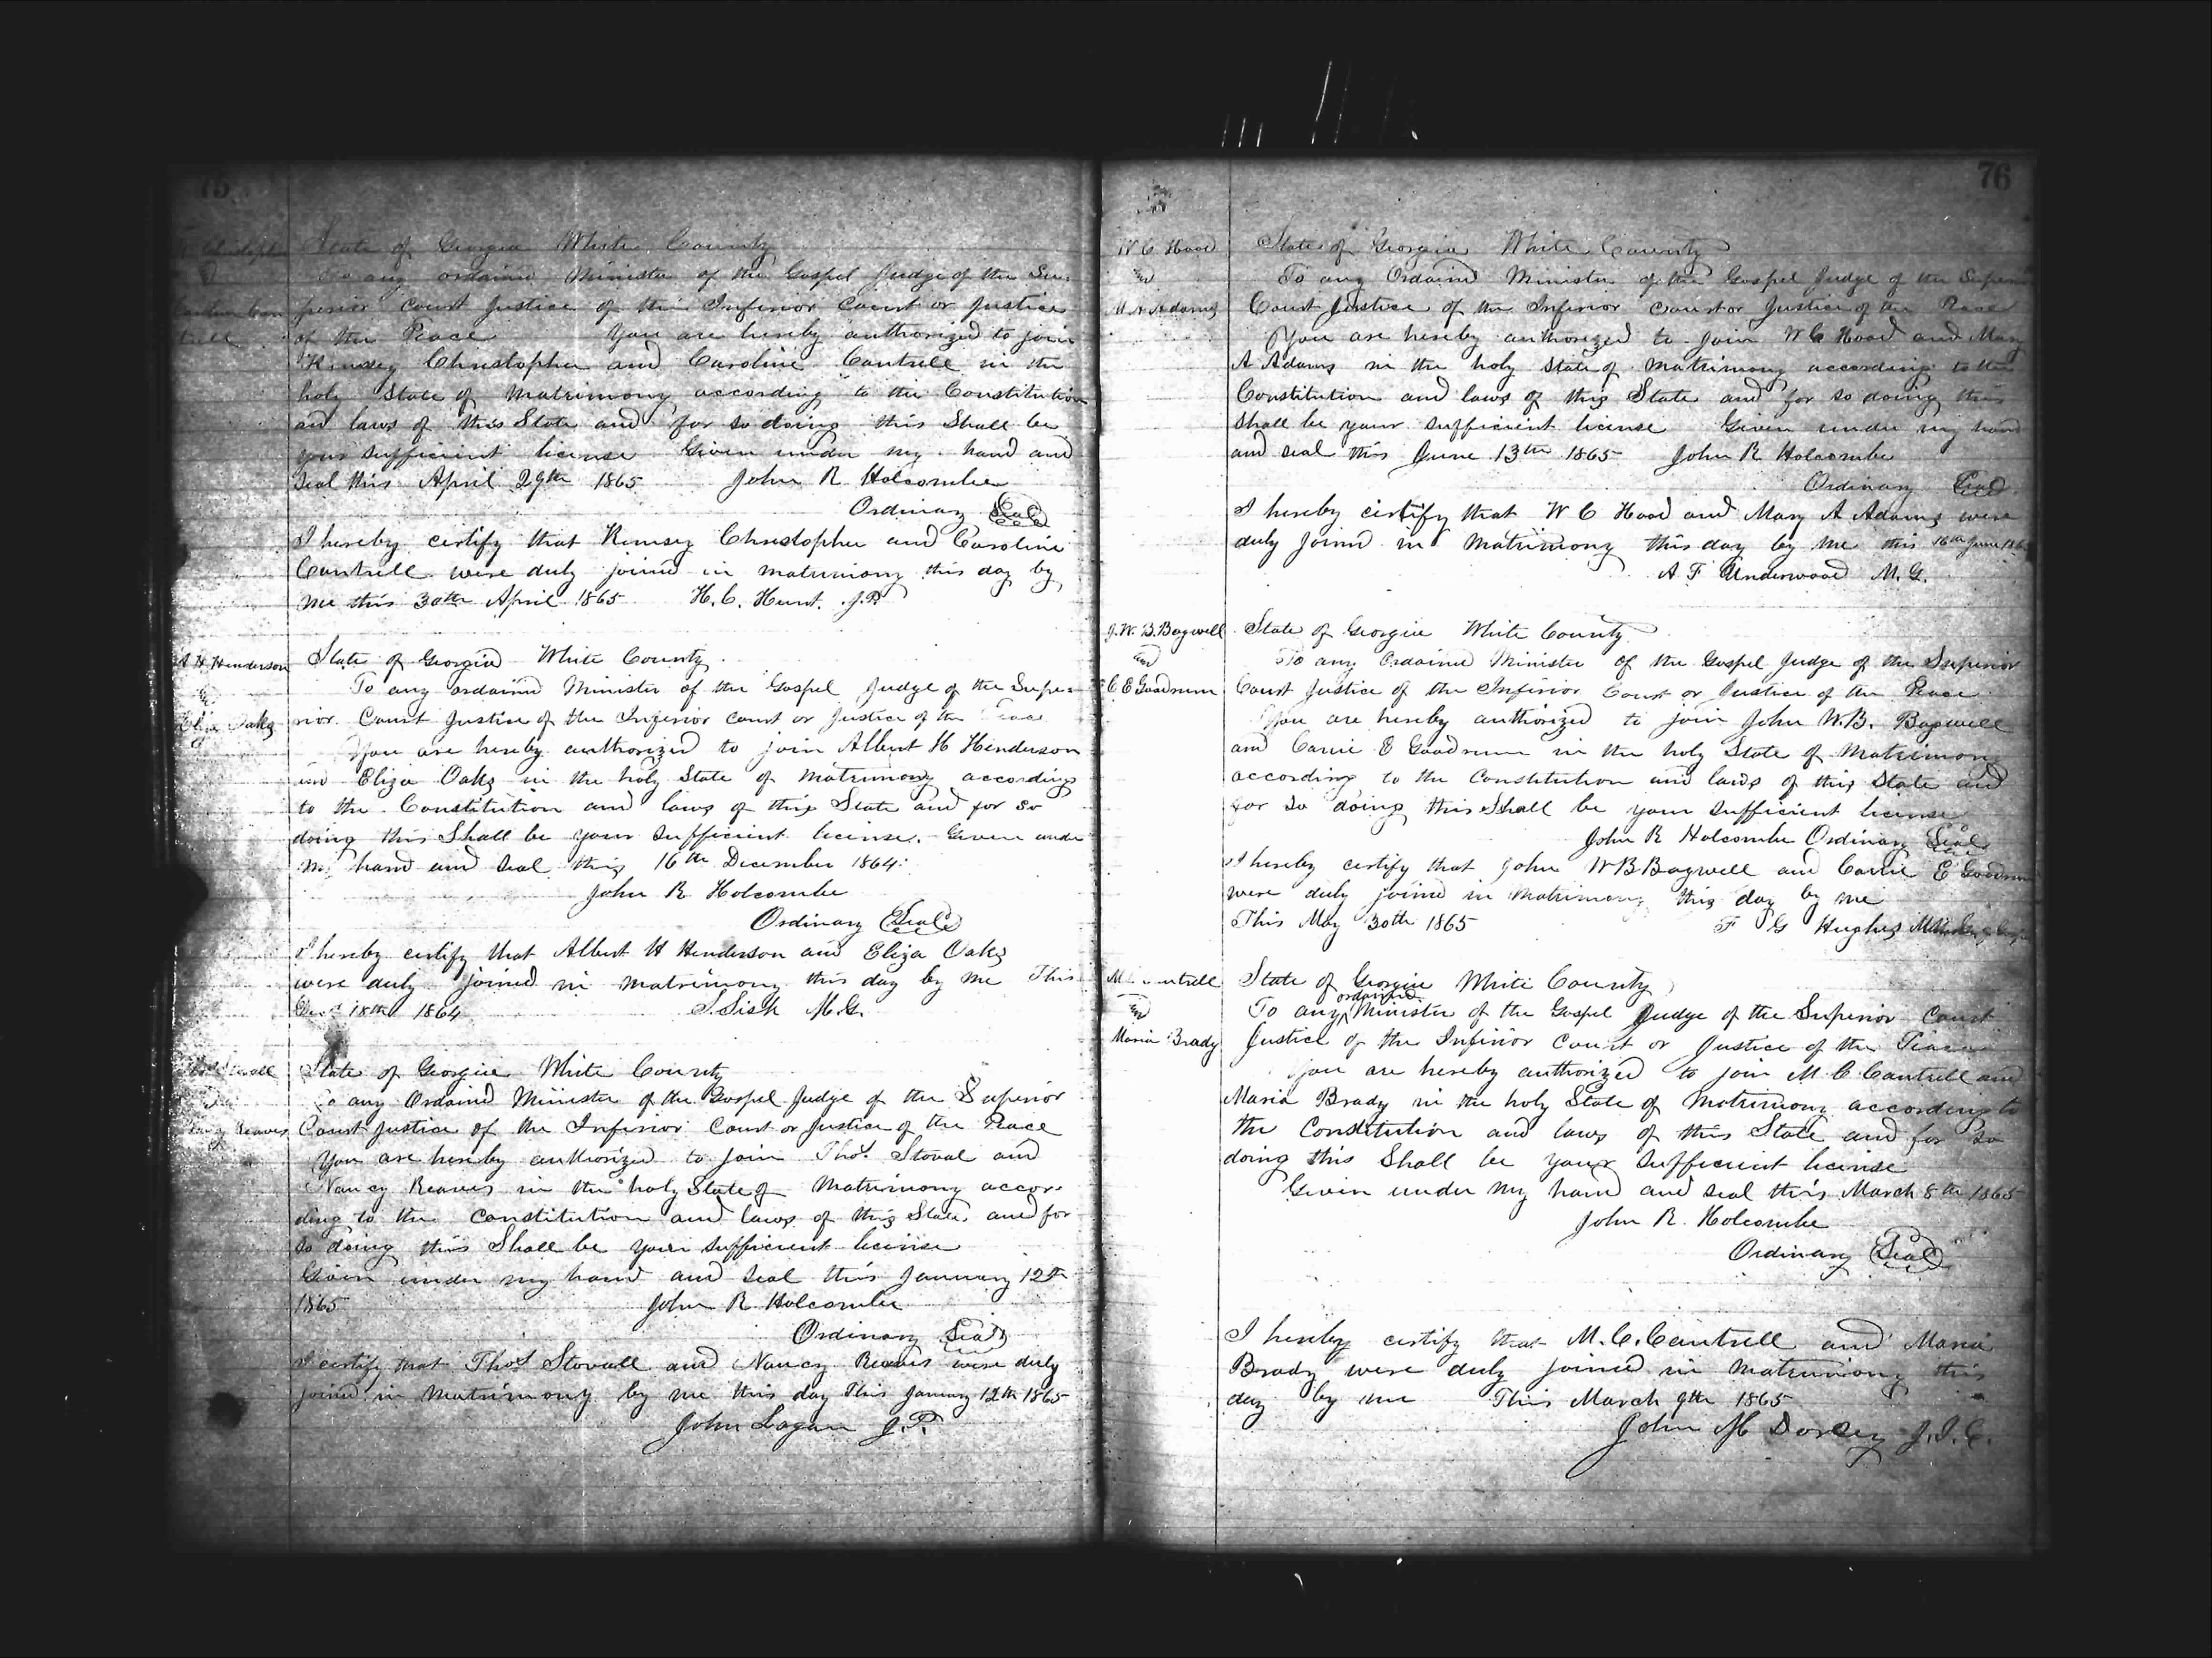 75
Christoph
Caroline Can
trell
State of Georgia White County
To any ordained Minister of the Gospel Judge of the Su-
perior Court Justice of the Inferior Court or Justice
of the Peace You are hereby authorized to join
Kimsey Christopher and Caroline Cantrell in the
holy State of Matrimony according to the Constitution
and laws of this State and for so doing this Shall be
your sufficient license Given under my hand and
Seal this April 29th 1865 John R Holcombe
Ordinary Seal
I hereby certify that Kimsey Christopher and Caroline
Cantrell were duly joined in matrimony this day by
me this 30th April 1865 H. C. Hunt. J.P.
A H Henderson
and
Eliza Oaks
State of Georgia White County
To any ordained Minister of the Gospel Judge of the Supe-
rior Court Justice of the Inferior Court or Justice of the Peace
You are hereby authorized to join Albert H Henderson
and Eliza Oaks in the holy State of Matrimony according
to the Constitution and laws of this State and for so
doing this Shall be your sufficient license. Given under
my hand and seal this 16th December 1864
John R Holcombe
Ordinary Seal
I hereby certify that Albert H Henderson and Eliza Oaks
were duly joined in matrimony this day by me This
18th 1864 S. Sisk M.G.
Stovall
Nancy Reaves
State of Georgia White County
To any Ordained Minister of the Gospel Judge of the Superior
Court Justice of the Inferior Court or Justice of the Peace
You are hereby authorized to join Thos. Stoval and
Nancy Reaves in the holy State of Matrimony accor-
ding to the Constitution and laws of this State, and for
so doing this Shall be your sufficient license
Given under my hand and seal this January 12th
1865 John R Holcombe
Ordinary Seal
I certify that Thos Stovall and Nancy Reaves were duly
joined in Matrimony by me this day This January 12th 1865
John Logan J.P.
76
W C Hood
and
M A Adams
State of Georgia White County
To any Ordained Minister of the Gospel Judge of the Superior
Court Justice of the Inferior Court or Justice of the Peace
You are hereby authorized to join W C Hood and Mary
A Adams in the holy State of Matrimony according to the
Constitution and laws of this State and for so doing this
Shall be your sufficient license Given under my hand
and seal this June 13th 1865 John R Holcombe
Ordinary Seal
I hereby certify that W C Hood and Mary A Adams were
duly joined in Matrimony this day by me this 16th June 186
A F Underwood M.G.
J. W. B. Bagwell
and
C E Goodrum
State of Georgia White County
To any Ordained Minister of the Gospel Judge of the Superior
Court Justice of the Inferior Court or Justice of the Peace
You are hereby authorized to join John W.B. Bagwell
and Carrie E Goodrum in the holy State of Matrimony
according to the Constitution and laws of this State and
for so doing this Shall be your sufficient license
John R Holcombe Ordinary Seal
I hereby certify that John W B Bagwell and Carrie E Goodrum
were duly joined in Matrimony this day by me
This May 30th 1865 F G Hughes
M Cantrell
and
Maria Brady
State of Georgia White County
ordained
To any Minister of the Gospel Judge of the Superior Court
Justice of the Inferior Court or Justice of the Peace
You are hereby authorized to join M. C. Cantrell and
Maria Brady in the holy State of Matrimony according to
the Constitution and laws of this State and for so
doing this Shall be your sufficient license
Given under my hand and seal this March 8th 1865
John R. Holcombe
Ordinary Seal
I hereby certify that M. C. Cantrell and Maria
Brady were duly joined in Matrimony this
day by me This March 9th 1865
John M Dorsey J.I.C.